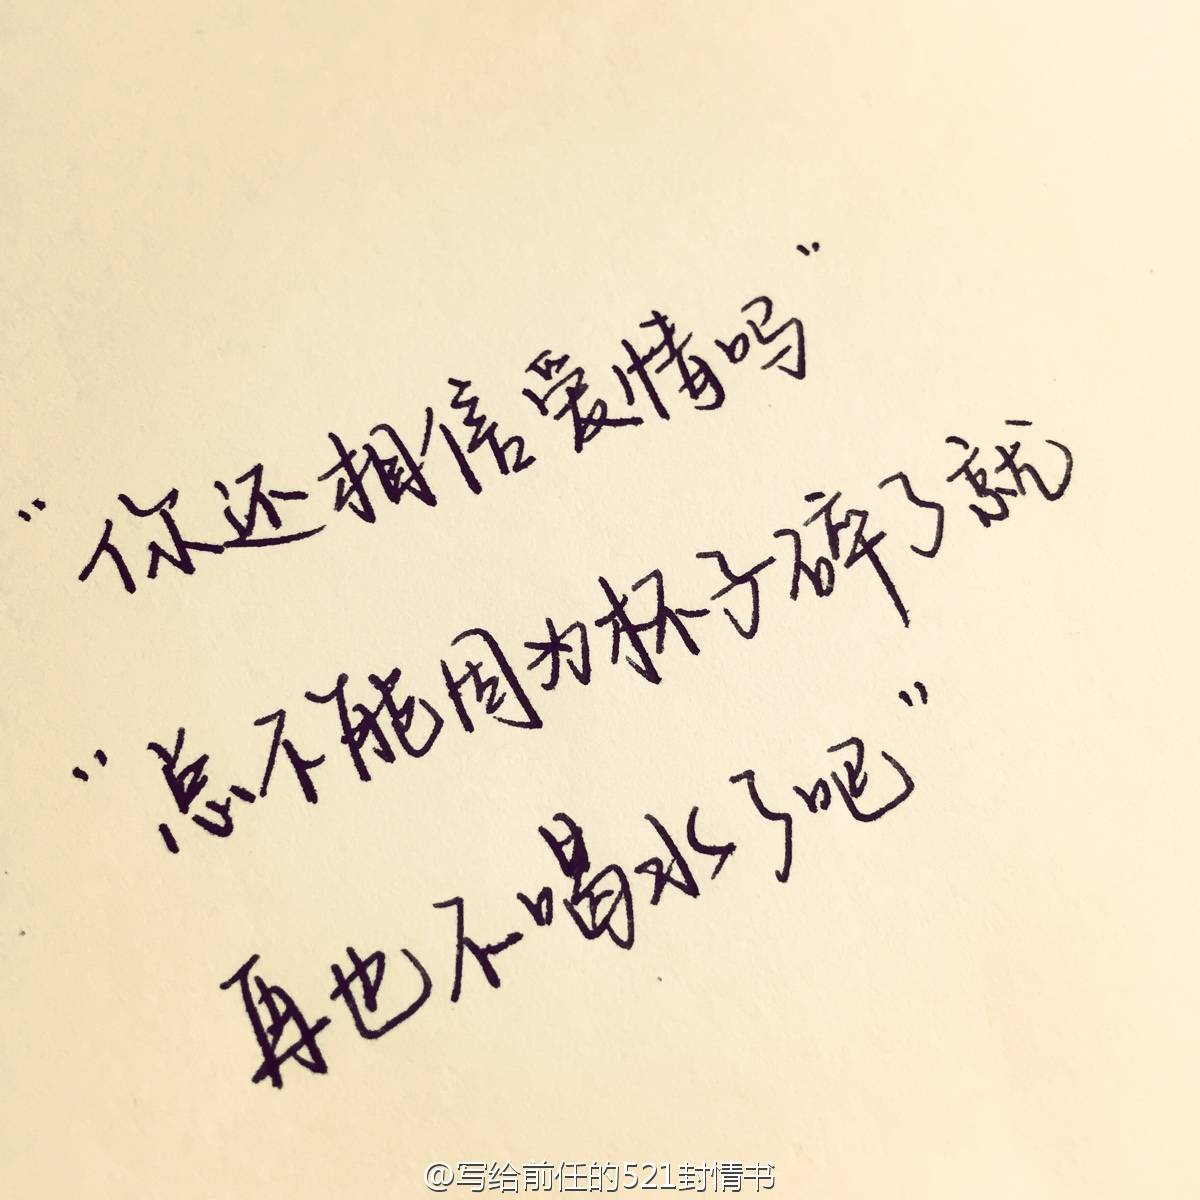 “你还相信爱情吗”
“总不能因为杯子碎了就
再也不喝水了吧”
@写给前任的521封情书